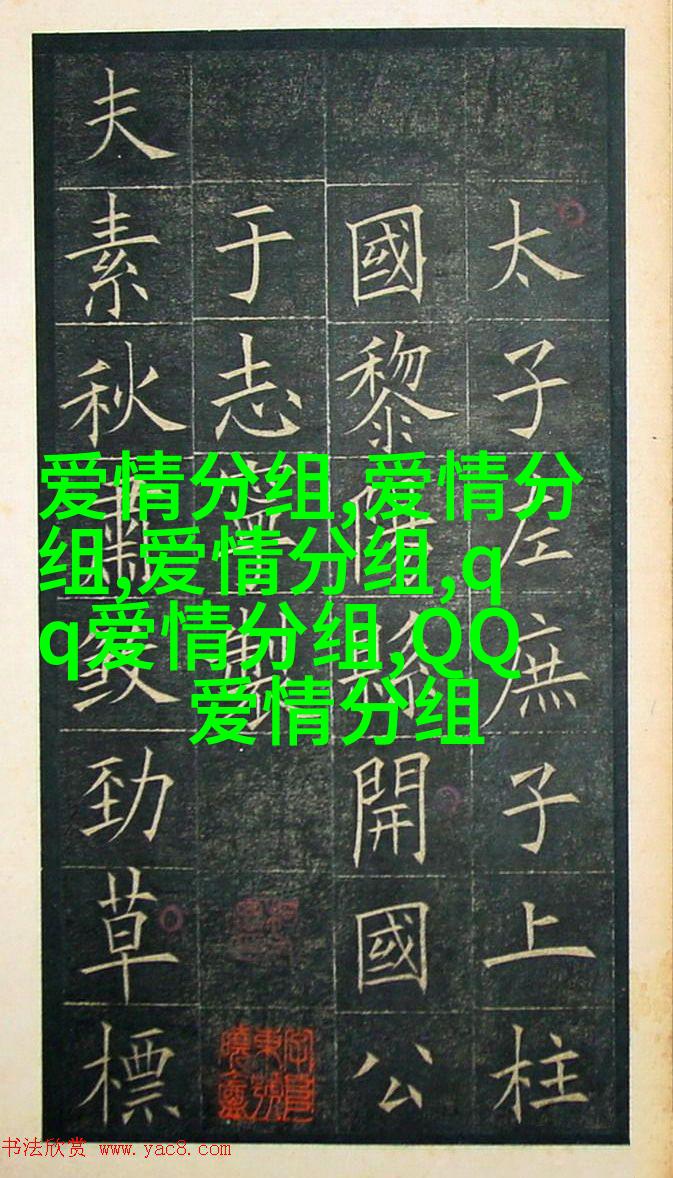 太子左庶子上柱
國黎陽縣開國公
于志寧製
夫素秋肅煞勁草標
爱情分组,爱情分
组,爱情分组,q
q爱情分组,QQ
爱情分组
书法欣赏 www.yac8.com